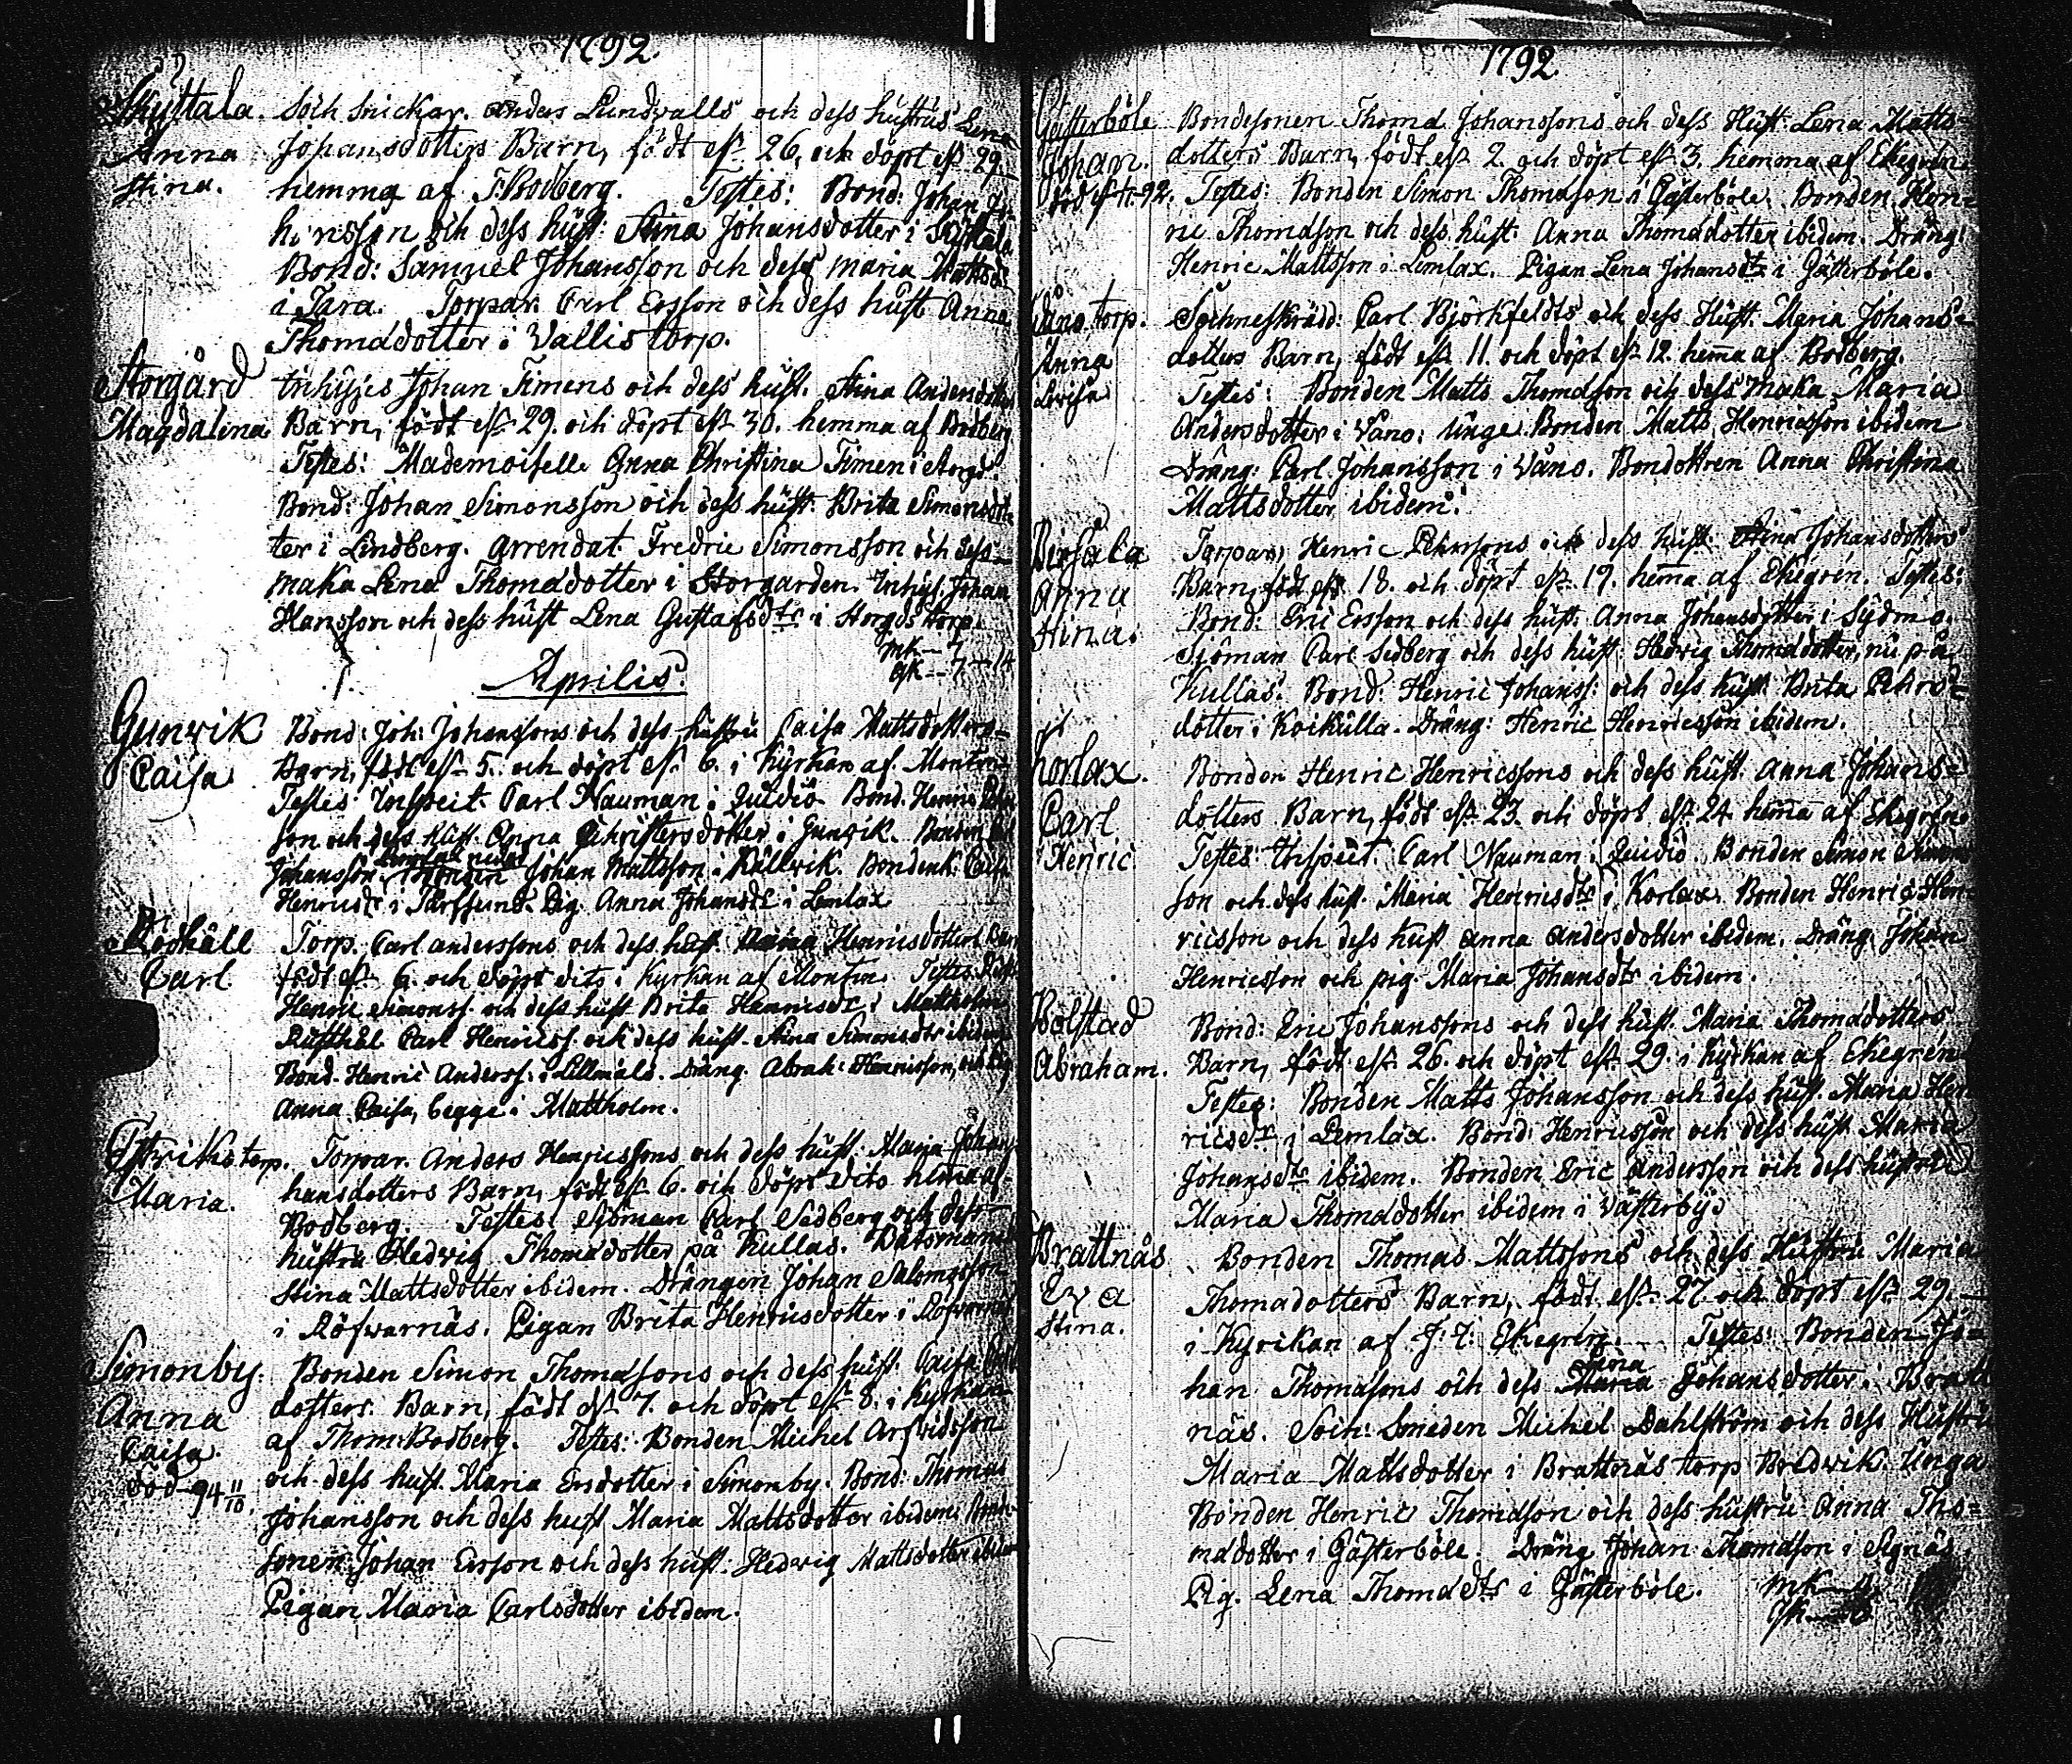 1792.
Skyttala. Soch snickar. Anders Lundwalls och dess hustrus Lena
Anna Johansdotters Barn, födt es 26, och döpt es 29.
Stina. hemma af T. Bodberg. Testes: Bond: Johan
hinrisson och dess hust: Stina Johansdotter i Skyttala
Bond: Samuel Johansson och dess Maria Mattsd
i Tara. Torpar. Carl Ersson och dess hust Anna
Thomædotter i Vallis torp.
Storgård Inhyses Johan Timens och dess hust. Stina Andersdotters
Magdalena Barn, födt es 29. och döpt es 30. hemma af Bodberg
Testes: Mademoiselle Anna Christina Timen i Storgd.
Bond: Johan Simonsson och dess hust: Brita Simonsdot
ter i Lindberg. Arrendat. Fredric Simonsson och dess
maka Lena Thomædotter i Storgården. Inhys. Johan
Hansson och dess hust Lena Gustafsdtr i Storgds torp.
mk — 7
qk — 7 — 14
Aprilis.
Gunvik Bond: Joh: Johanssons och dess hustru Caisa Mattsdotters
Caisa Barn, födt es 5. och döpt es 6. i Kyrkan af Montin
Testes Inspect. Carl Nauman i Quidiö Bond. Henric
son och dess hust. Anna Christersdotter i Gunvik. Bonden
Johansson Johan Mattsson i Källvik. Bondenk: Caisa
Henricsdtr i Pärssund. Pig. Anna Johansdtr i Lemlax
Rödhäll Torp. Carl Anderssons och dess hust Henricsdotters Barn
Carl födt es 6. och döpt dito i Kyrkan af Montin Testes.
Henric Simonss. och dess hust Brita Henricsdtr i Mattholm
Rusthål Carl Henricss. och dess hust Stina Simonsdtr ibidem
Bond. Henric Anderss: i Lillmälö. Dräng. Abrah: Henricsson, och Pig
Anna Caisa, begge i Mattholm.
torp. Torpar. Anders Henricssons och dess hust: Maria Johan
Maria. hansdotters Barn, födt es 6. och döpt dito hemma af
Bodberg. Testes: Sjöman Carl Sedberg och dess
hustru Hedvig Thomædotter på Kullas. Båtsmans
Stina Mattsdotter ibidem. Drängen Johan Salomosson
i Röfwarnäs. Pigan Brita Henricsdotter i Röfwarnäs
Simonby. Bonden Simon Thomæsons och dess hust. Caisa
Anna dotters Barn, födt es 7. och döpt es 8. i Kyrkan
Caisa af Thom: Bodberg. Testes: Bonden Michel Arfwidsson
död 94 11/10. och dess hust. Maria Ersdotter i Simonby. Bond: Thomas
Johansson och dess hust Maria Mattsdotter ibidem
sonen Johan Ersson och dess hust: Hedwig Mattsdotter ibidem
Pigan Maria Carlsdotter ibidem.
1792
Gästerböle Bondesonen Thomæ Johanssons och dess Hust. Lena Matts-
Johan. dotters Barn, födt es 2. och döpt es 3. hemma af Ekegrén.
Testes: Bonden Simon Thomæson i Gästerböle. Bonden Hen-
ric Thomæsson och dess hust. Anna Thomædotter ibidem. Dräng:
Henric Mattsson i Lemlax. Pigan Lena Johansdtr i Gästerböle.
Våno torp. Sochneskrädd: Carl Björkfeldts och dess Hust. Maria Johans-
Anna dotters Barn, födt es 11. och döpt es 12. hema af Bodberg.
Lovisa Testes: Bonden Matts Thomæson och dess maka Maria
Andersdotter i Våno. Unge Bonden Matts Henricsson ibidem
Dräng: Carl Johansson i Våno. Bondottren Anna Christina
Mattsdotter ibidem.
Torpar. Henric Pehrssons och dess hust. Stina Johansdotters
Anna Barn, födt es 18. och döpt es 19. hema af Ekegrén. Testes:
Stina. Bond: Eric Ersson och dess hust. Anna Johansdotter i Sydmo.
Sjöman Carl Sedberg och dess hust. Hedvig Thomædotter, nu på
Kullas. Bond. Henric Johanss: och dess hust Brita Pehrs-
dotter i Koikulla. Dräng: Henric Henricsson ibidem.
Korlax. Bonden Henric Henricssons och dess hust. Anna Johans-
Carl dotters Barn, födt es 23. och döpt es 24 hema af Ekegrén.
Henric Testes: Inspect. Carl Nauman i Quidiö. Bonden Simon Simon
son och dess hust. Maria Henricsdtr i Korlax. Bonden Henric Hen-
ricsson och dess hust Anna Andersdotter ibidem. Dräng Johan
Henricsson och pig. Maria Johansdtr ibidem.
Bolstad Bond: Eric Johanssons och dess hust. Maria Thomædotters
Abraham. Barn, födt es 26. och döpt es 29. i Kyrkan af Ekegrén
Testes: Bonden Matts Johansson och dess hust. Maria Hen
ricsdtr i Lemlax. Bond. Henricsson och dess hust Maria
Johansdtr ibidem. Bonden Eric Andersson och dess hustru
Maria Thomædotter ibidem i Västerby.
Brattnäs Bonden Thomas Mattssons och dess Hustru Maria
Eva Thomædotters Barn, födt es 27 och döpt es 29.
Stina. i Kyrkan af J: F: Ekegrén. Testes: Bonden Jo-
han Thomæsons och dess Maria Johansdotter i Bratt
näs. Soch: Smeden Michel Dahlström och dess Hustru
Maria Mattsdotter i Brattnäs torp Bredvik. Unga
Bonden Henric Thomæson och dess hustru Anna Tho-
mædotter i Gästerböle. Dräng Johan Thomæson i
Pig. Lena Thomædtr i Gästerböle.